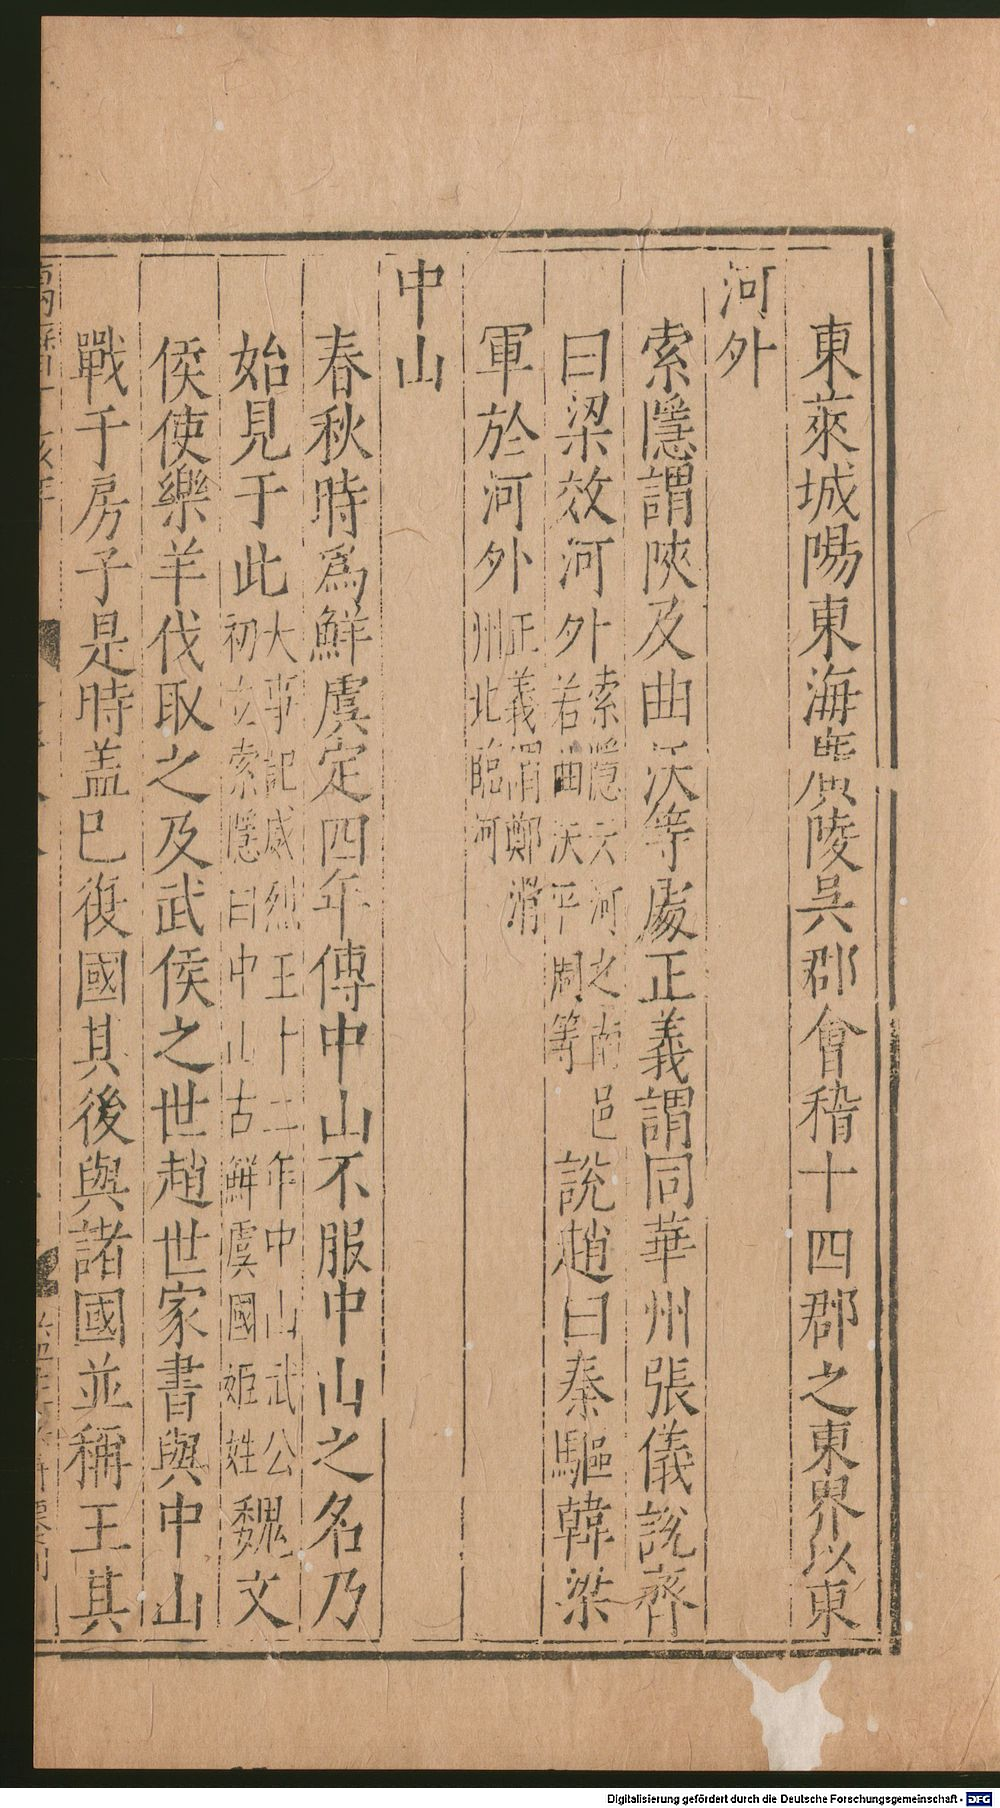 東萊城陽東海廣陵吳郡會稽十四郡之東界以東
河外
索隱謂陝及曲沃等處正義謂同華州張儀說齊
曰梁效河外索隱云河之南邑若曲沃平周等說趙曰秦驅韓梁
軍於河外正義謂鄭滑州北臨河
中山
春秋時爲鮮虞定四年傳中山不服中山之名乃
始見于此大事記威烈王十二年中山武公初立索隱曰中山古鮮虞國姬姓魏文
侯使樂羊伐取之及武侯之世趙世家書與中山
戰于房子是時蓋已復國其後與諸國並稱王其
Digitalisierung gefördert durch die Deutsche Forschungsgemeinschaft - DFG